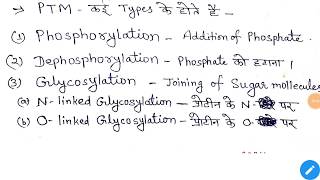 → PTM - कई Types के होते हैं -
(1) Phosphorylation - Addition of Phosphate.
(2) Dephosphorylation - Phosphate को हटाना ।
(3) Glycosylation - Joining of Sugar molecules
(a) N-linked Glycosylation - प्रोटीन के N- पर
(b) O-linked Glycosylation - प्रोटीन के O- पर